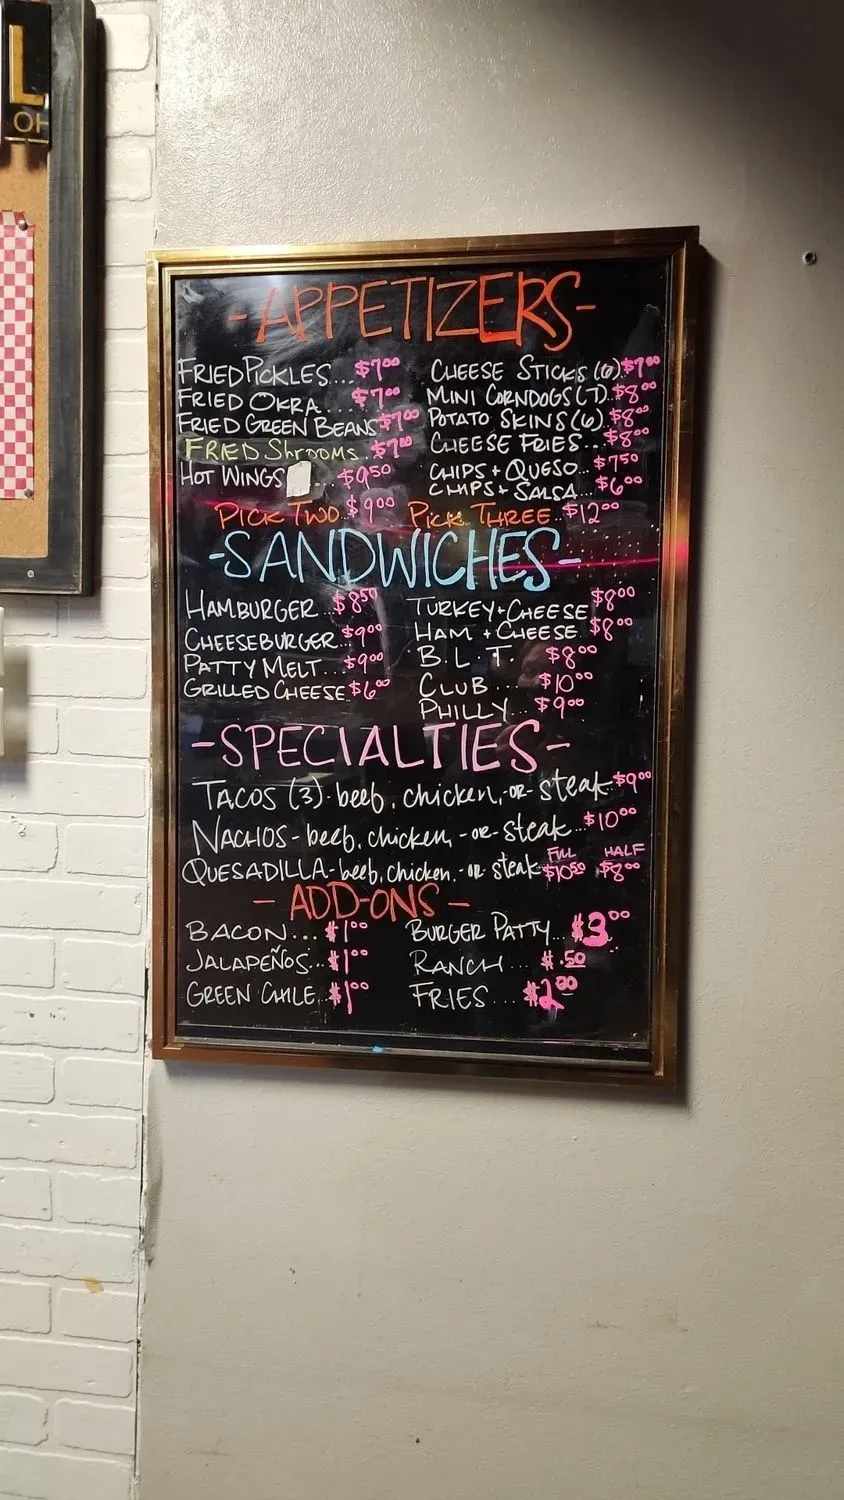 L
OH
-APPETIZERS-
FRIED PICKLES... $7.00
FRIED OKRA.... $7.00
FRIED GREEN BEANS $7.00
FRIED Shrooms. $7.00
HOT WINGS ... $9.50
CHEESE STICKS (6). $7.00
MINI CORNDOGS (7). $8.00
POTATO SKINS (6). $8.00
CHEESE FRIES... $8.00
CHIPS + QUESO... $7.50
CHIPS + SALSA... $6.00
PICK TWO. $9.00 PICK THREE... $12.00
-SANDWICHES-
HAMBURGER... $8.50
CHEESEBURGER... $9.00
PATTY MELT... $9.00
GRILLED CHEESE $6.00
TURKEY + CHEESE $8.00
HAM + CHEESE. $8.00
B.L.T. $8.00
CLUB.... $10.00
PHILLY... $9.00
-SPECIALTIES-
TACOS (3) - beef, chicken, -or- steak. $9.00
NACHOS - beef, chicken, -or- steak... $10.00
FULL HALF
QUESADILLA - beef, chicken, -or- steak $10.50 $8.00
- ADD-ONS -
BACON... $1.00
JALAPEÑOS... $1.00
GREEN CHILE $1.00
BURGER PATTY... $3.00
RANCH... $.50
FRIES.... $2.00